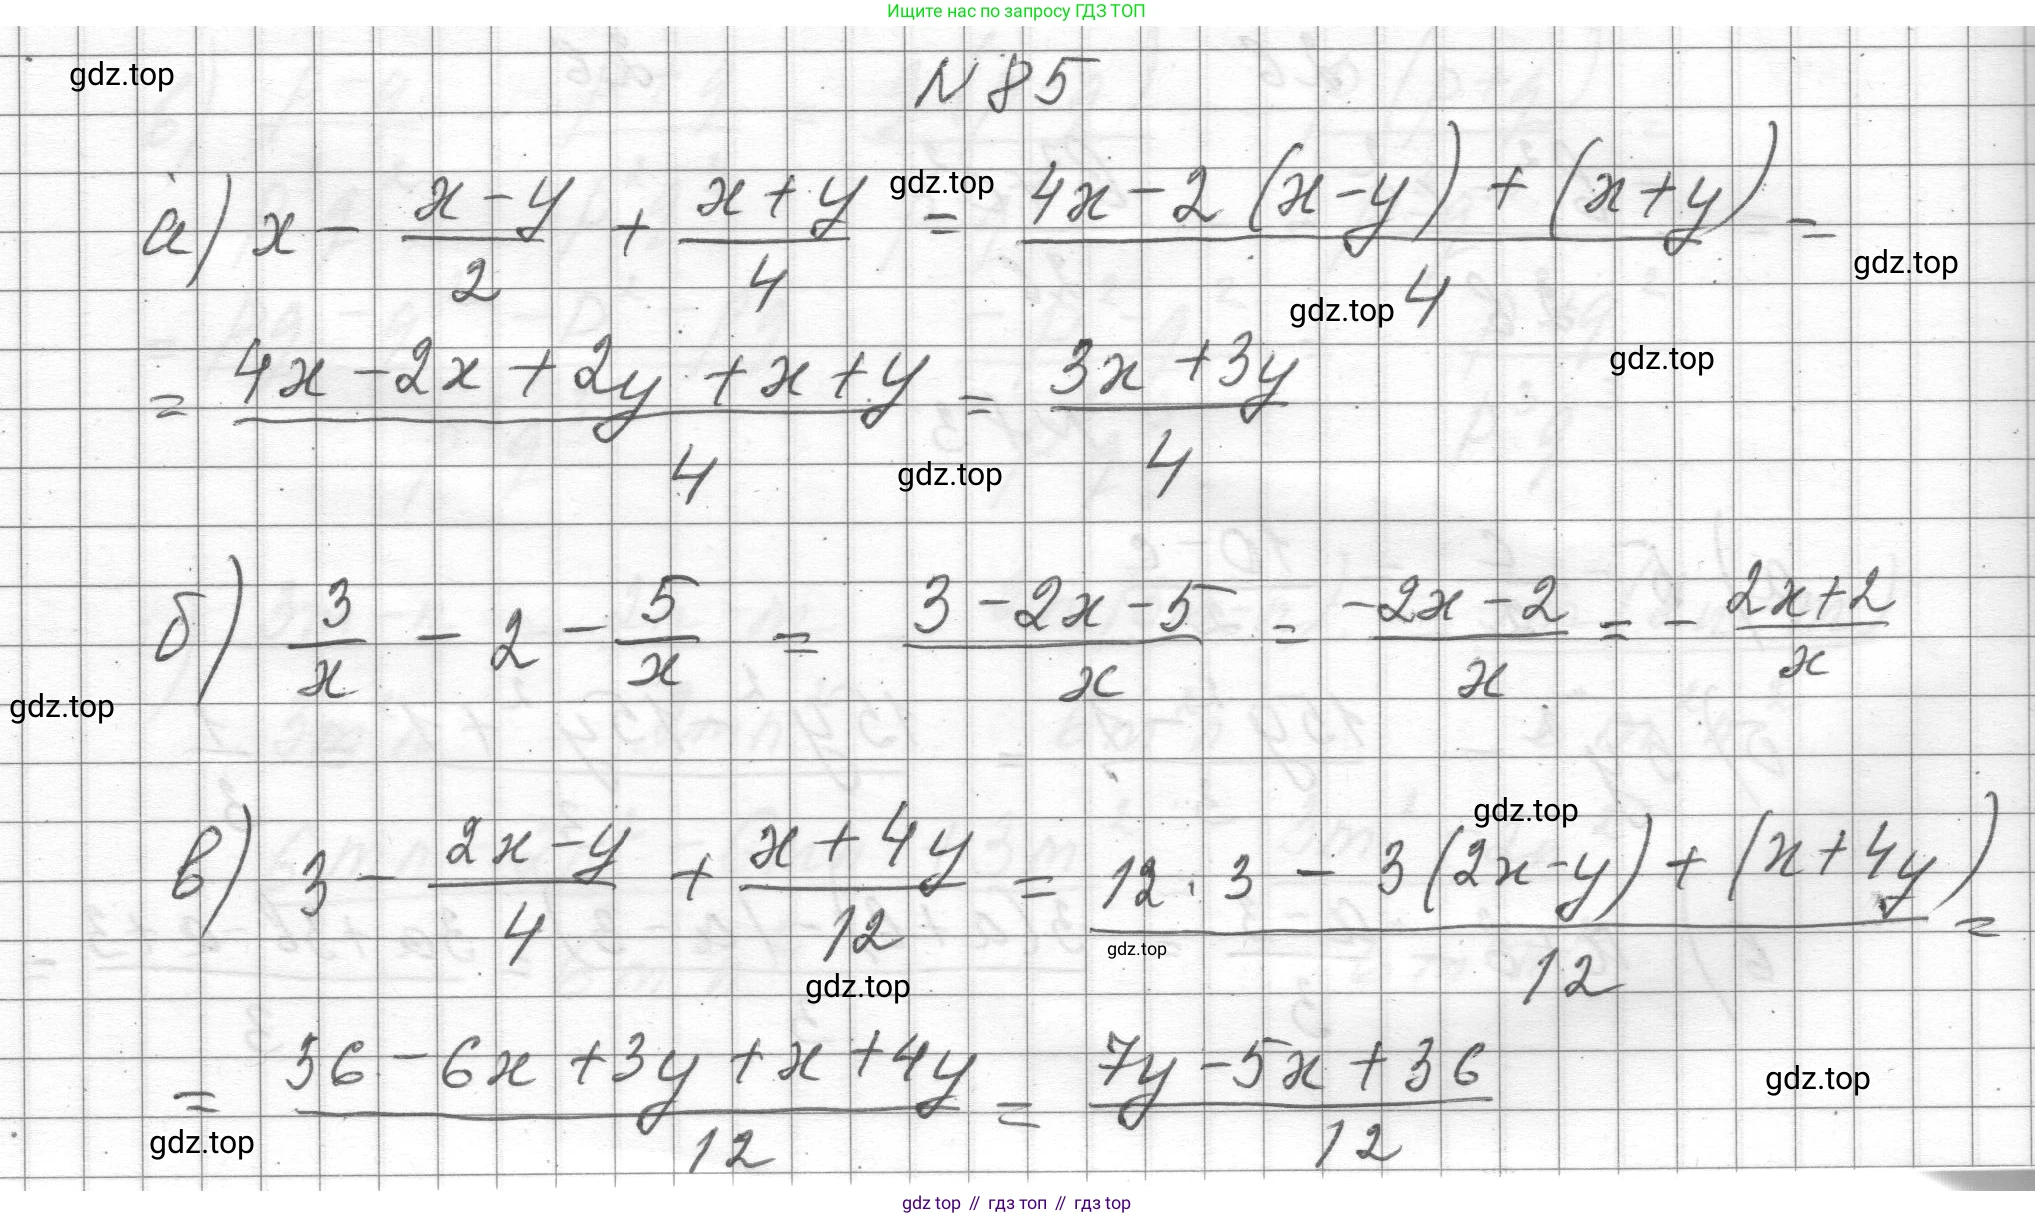 Ищите нас по запросу ГДЗ ТОП
gdz.top
N 85
а) x - (x-y)/2 + (x+y)/4 = (4x-2(x-y)+(x+y))/4 =
gdz.top
gdz.top
gdz.top
gdz.top
= (4x-2x+2y+x+y)/4 = (3x+3y)/4
gdz.top
б) 3/x - 2 - 5/x = (3-2x-5)/x = (-2x-2)/x = - (2x+2)/x
gdz.top
gdz.top
в) 3 - (2x-y)/4 + (x+4y)/12 = (12·3 - 3(2x-y)+(x+4y))/12 =
gdz.top
gdz.top
= (36-6x+3y+x+4y)/12 = (7y-5x+36)/12
gdz.top
gdz.top
gdz top // гдз топ // гдз top